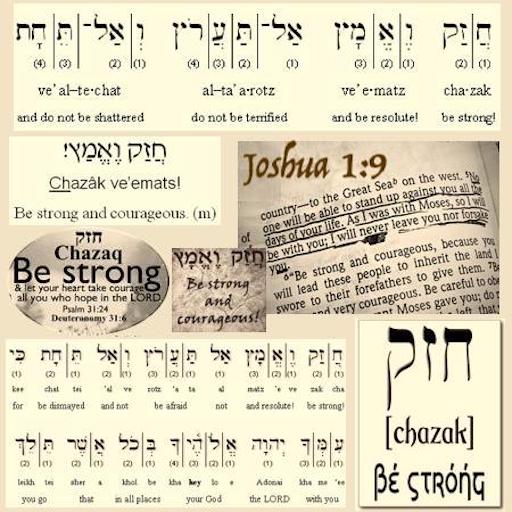 חֲ זַק וֶ אֱ מָץ אַל־ תַּ עֲ רֹץ וְ אַל־ תֵּ חָת
(4) (3) (2) (1) (4) (3) (2) (1) (3) (2) (1) (2) (1)
ve' al–te•chat al–ta'a•rotz ve'e•matz cha•zak
and do not be shattered do not be terrified and be resolute! be strong!
חֲזַק וֶאֱמָץ!
Chazâk ve'emats!
Be strong and courageous. (m)
Joshua 1:9
country—to the Great Sea on the west. No
one will be able to stand up against you all the
days of your life. As I was with Moses, so I will
be with you; I will never leave you nor forsake
you.
"Be strong and courageous, because you
will lead these people to inherit the land I
swore to their forefathers to give them. 7B
and very courageous. Be careful to obe
Moses gave you; do n
חזק
Chazaq
Be strong
& let your heart take courage
all you who hope in the LORD.
Psalm 31:24
Deuteronomy 31:6
חֲזַק וֶאֱמָץ
Be strong
and
courageous!
חֲ זַק וֶ אֱ מָץ אַל תַּ עֲ רֹץ וְ אַל תֵּ חָת כִּי
kee chat tei 'al ve rotz 'a ta al matz 'e ve zak cha
for be dismayed and not be afraid not and resolute! be strong!
עִ מְּ ךָ יְהוָה אֱ לֹ הֶי ךָ בְּ כֹל אֲ שֶׁר תֵּ לֵךְ
leikh tei sher a khol be kha key lo e Adonai kha me 'ee
you go that in all places your God the LORD with you
חזק
[chazak]
BE STRONG